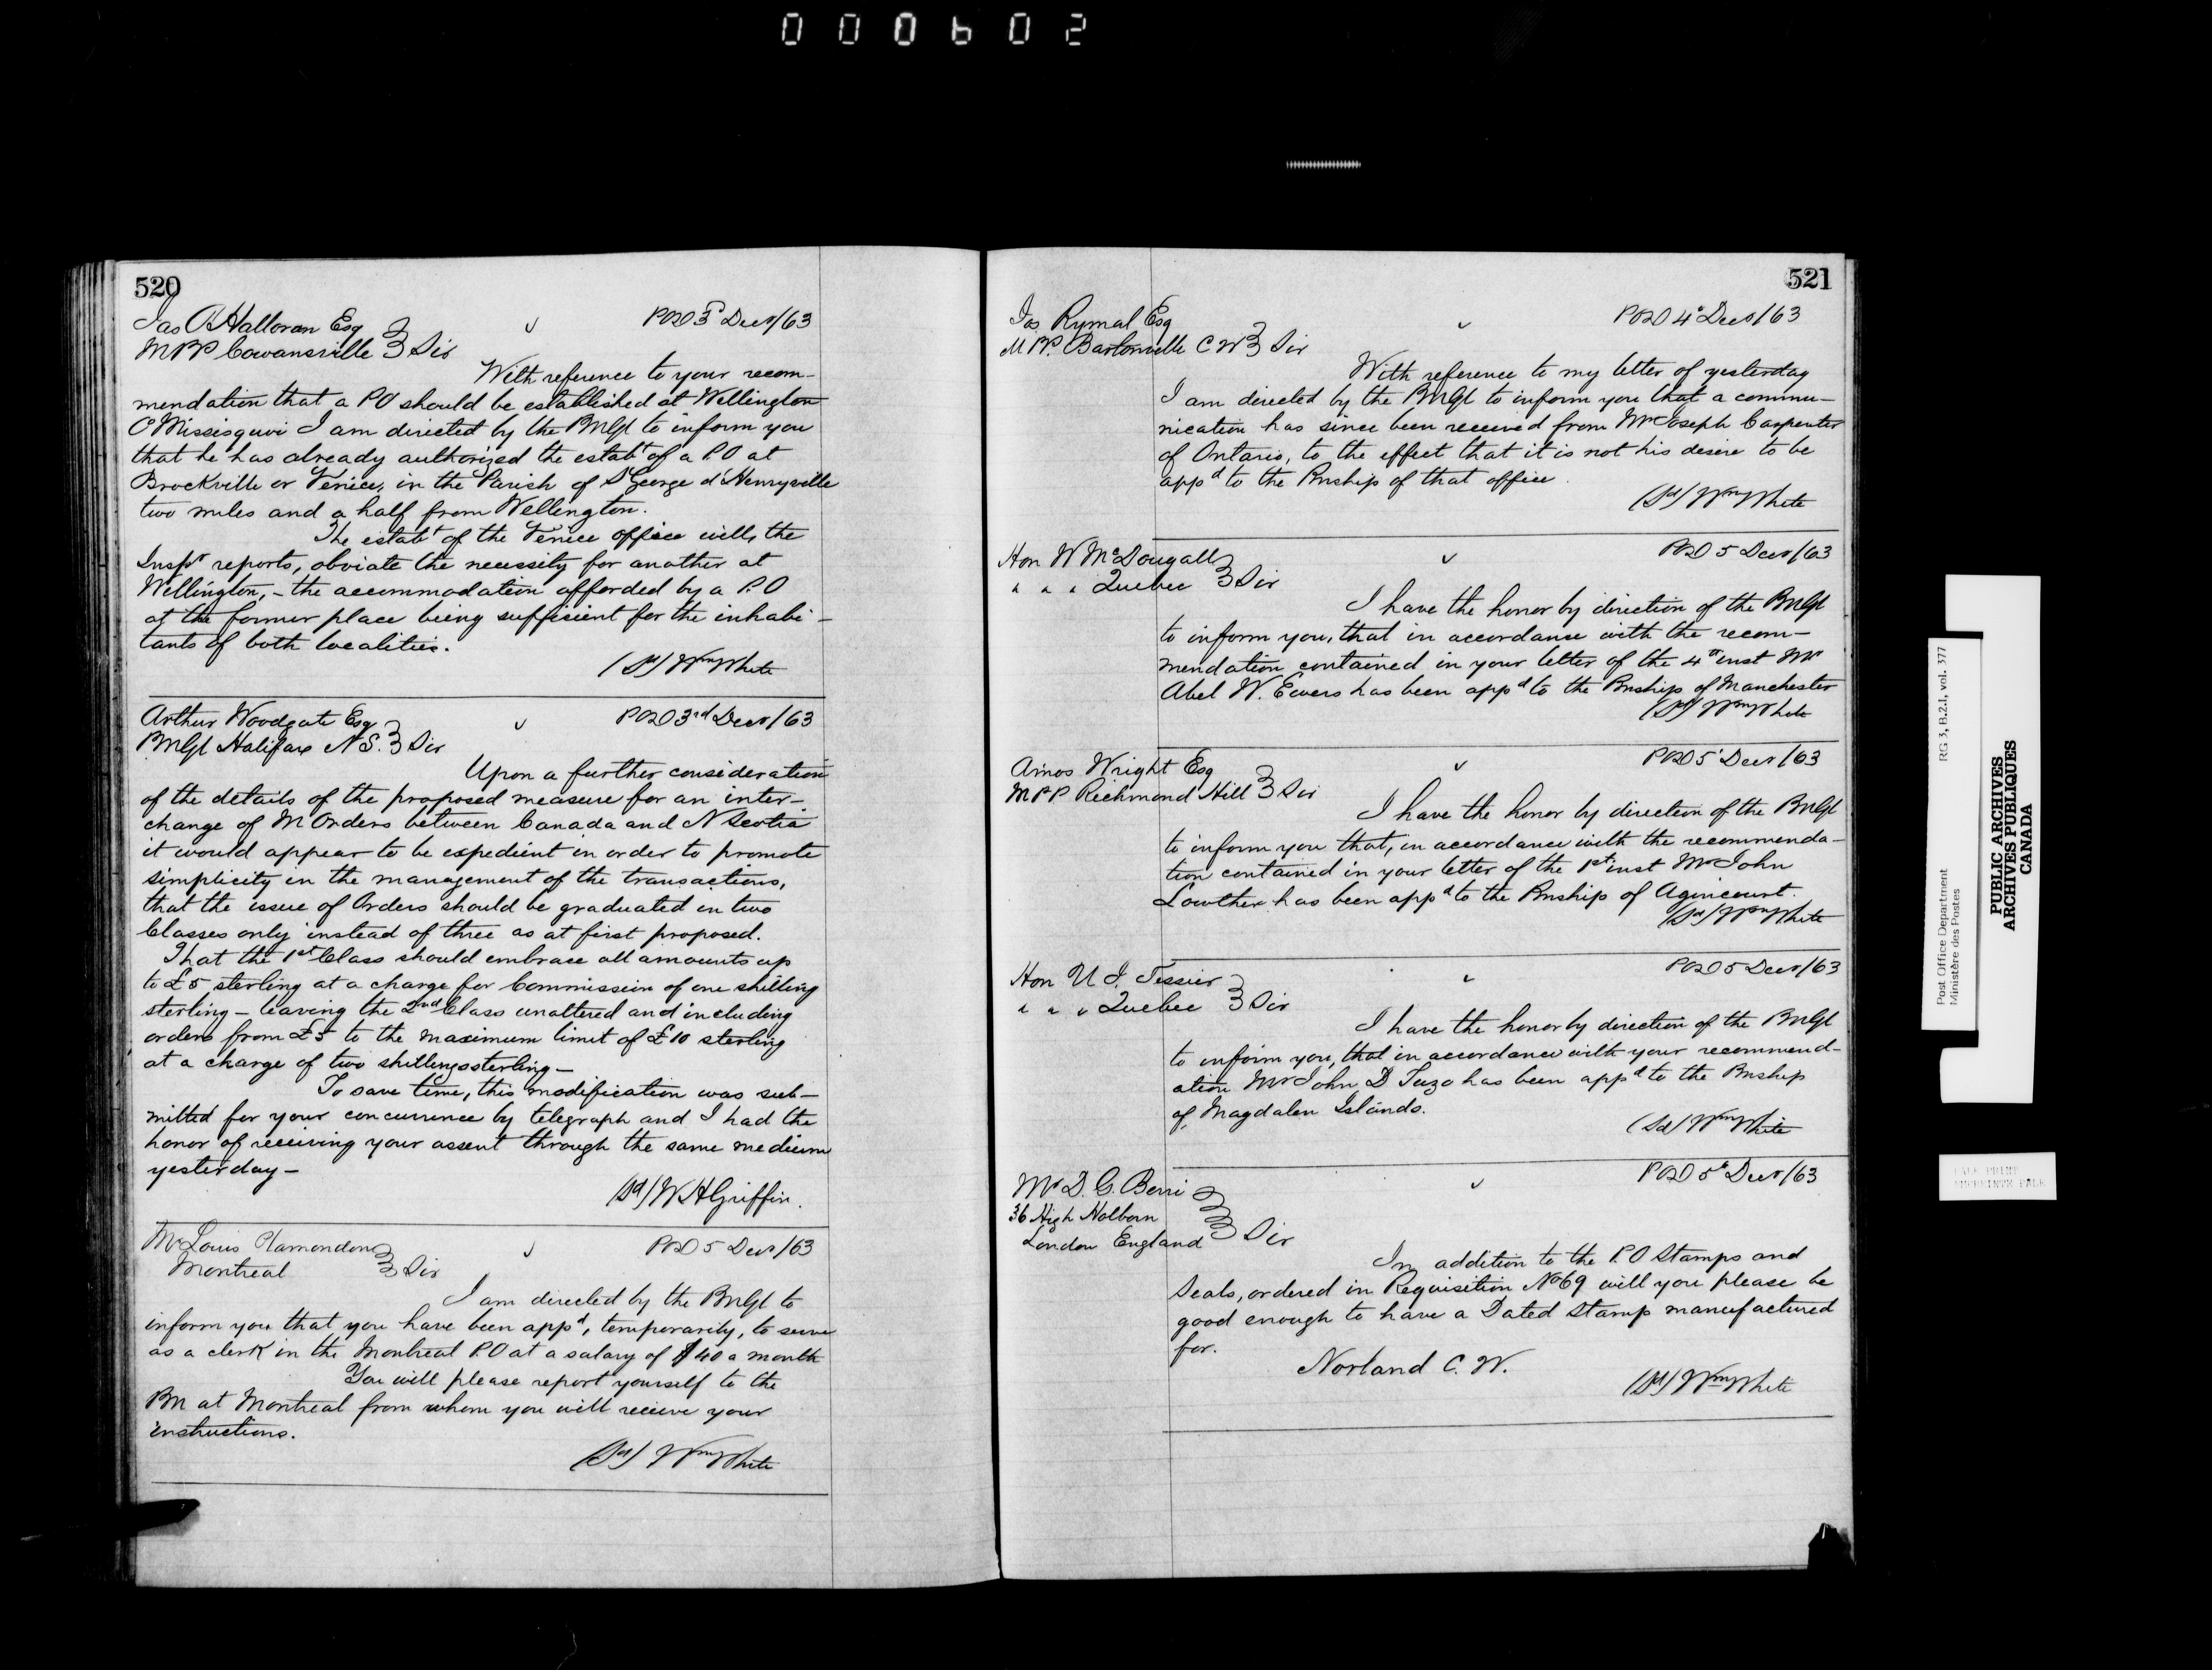 000602
520
Jas O'Halloran Esq
MPP Cowansville } Sir
POD 3d Decr/63
With reference to your recom-
mendation that a PO should be established at Wellington
C Missisquoi I am directed by the PMGl to inform you
that he has already authorized the estabt of a P.O at
Brockville or Venice, in the Parish of St George d'Henryville
two miles and a half from Wellington.
The estabt of the Venice office will, the
Inspr reports, obviate the necessity for another at
Wellington, - the accommodation afforded by a P.O
at the former place being sufficient for the inhabi-
tants of both localities.
(Sd) Wm White
Arthur Woodgate Esq
PMGl Halifax N.S. } Sir
POD 3rd Decr/63
Upon a further consideration
of the details of the proposed measure for an inter-
change of M Orders between Canada and N Scotia
it would appear to be expedient in order to promote
simplicity in the management of the transactions,
that the issue of Orders should be graduated in two
Classes only instead of three as at first proposed.
That the 1st Class should embrace all amounts up
to £5 sterling at a charge for Commission of one shilling
sterling - leaving the 2nd Class unaltered and including
orders from £5 to the maximum limit of £10 sterling
at a charge of two shillings sterling -
To save time, this modification was sub-
mitted for your concurrence by telegraph and I had the
honor of receiving your assent through the same medium
yesterday -
(Sd) W H Griffin.
Mr Louis Plamondon
Montreal } Sir
POD 5 Decr/63
I am directed by the PMGl to
inform you that you have been appd, temporarily, to serve
as a clerk in the Montreal P.O at a salary of $40 a month
You will please report yourself to the
PM at Montreal from whom you will receive your
instructions.
(Sd) Wm White
521
Jos Rymal Esq
M PP. Bartonville C W } Sir
POD 4th Decr/63
With reference to my letter of yesterday
I am directed by the PMGl to inform you that a commu-
nication has since been received from Mr Joseph Carpenter
of Ontario, to the effect that it is not his desire to be
appd to the Pmship of that office.
(Sd) Wm White
Hon W McDougall
" " " Quebec } Sir
POD 5 Decr/63
I have the honor by direction of the PMGl
to inform you, that in accordance with the recom-
mendation contained in your letter of the 4th inst Mr
Abel W. Ewers has been appd to the Pmship of Manchester
(Sd) Wm White
Amos Wright Esq
MPP Richmond Hill } Sir
POD 5 Decr/63
I have the honor by direction of the PMGl
to inform you that, in accordance with the recommenda-
tion contained in your letter of the 1st inst Mr John
Lowther has been appd to the Pmship of Agincourt.
(Sd) Wm White
Hon U J. Tessier
" " " Quebec } Sir
POD 5 Decr/63
I have the honor by direction of the PMGl
to inform you, that in accordance with your recommend-
ation Mr John D Tuzo has been appd to the Pmship
of Magdalen Islands.
(Sd) Wm White
Mr D. G. Berri
36 High Holborn
London England } Sir
POD 5th Decr/63
In addition to the P.O Stamps and
Seals, ordered in Requisition No 69 will you please be
good enough to have a Dated Stamp manufactured
for.
Norland C. W.
(Sd) Wm White
Post Office Department
Ministère des Postes
RG 3, B.2.I, vol. 377
PUBLIC ARCHIVES
ARCHIVES PUBLIQUES
CANADA